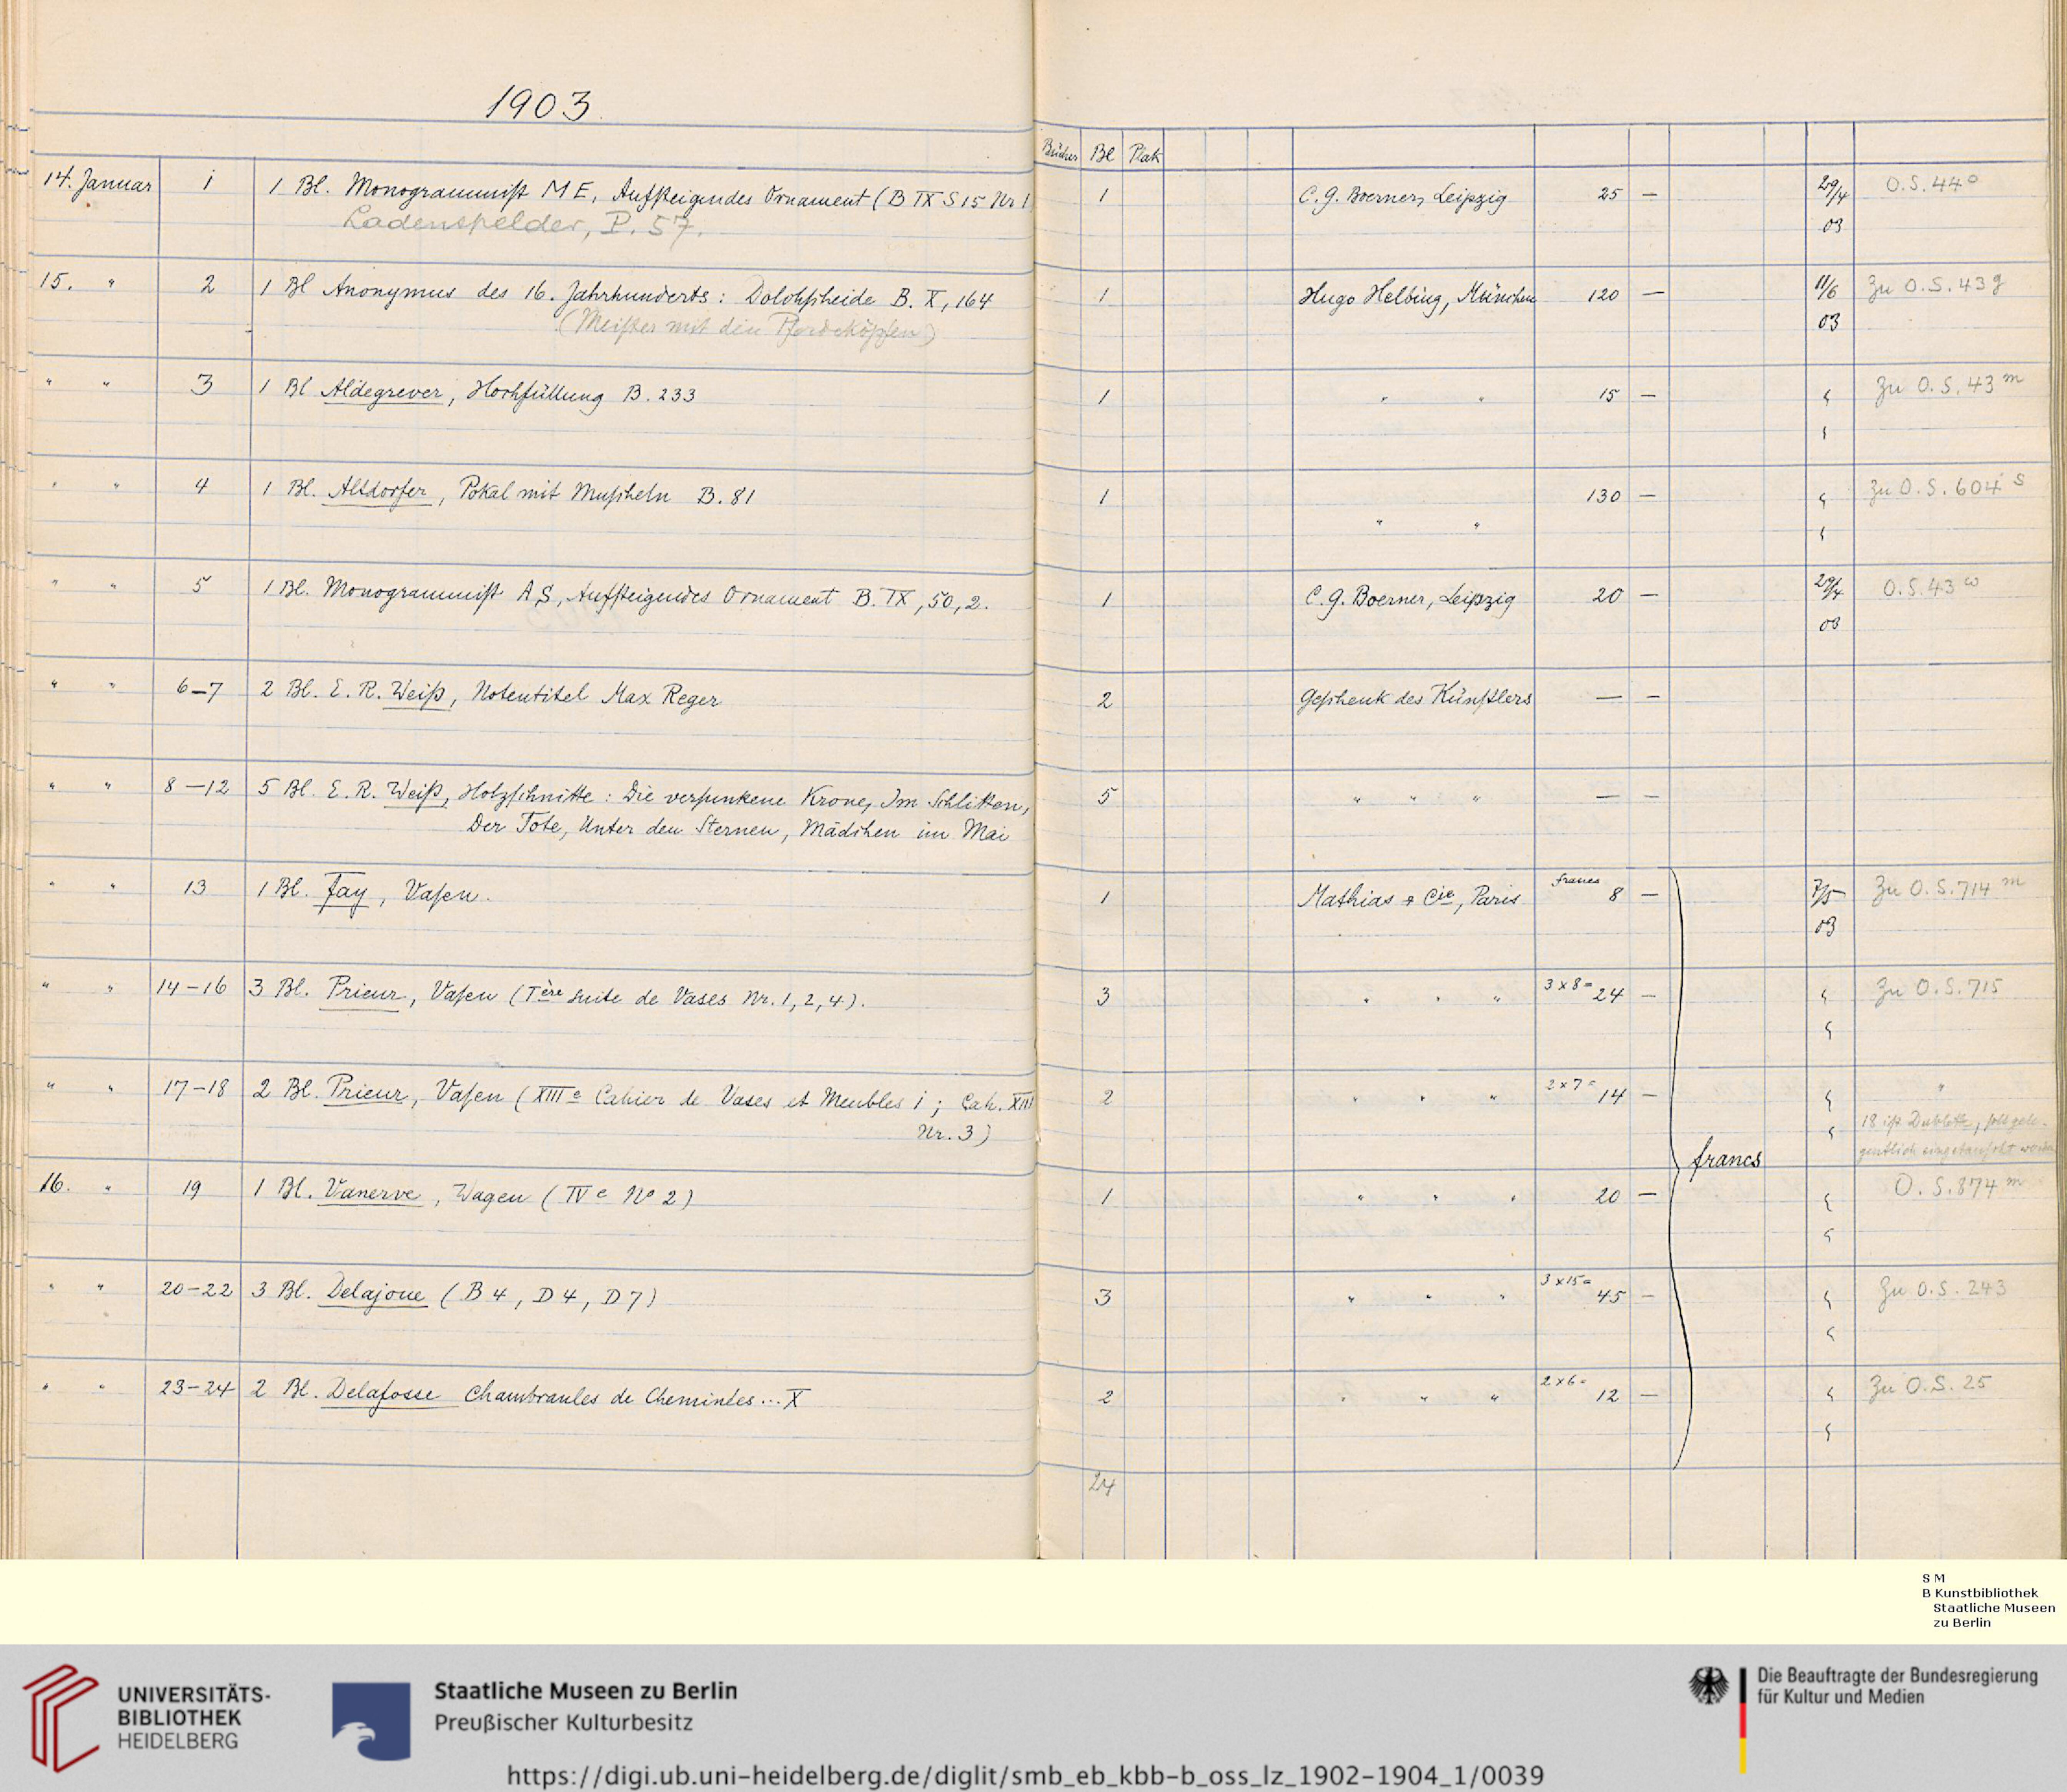 1903.
Bücher Bl Plak
14. Januar 1 1 Bl. Monogrammist ME, Aufsteigendes Ornament (B IX S 15 Nr 1 1 C. G. Boerner, Leipzig 25 — 29/4 O.S. 44 a
Ladenspelder, P. 57. 03
15. " 2 1 Bl Anonymus des 16. Jahrhunderts: Dolchscheide B. X, 164 1 Hugo Helbing, München 120 — 11/6 Zu O.S. 43 g
(Meister mit den Pferdeköpfen) 03
" " 3 1 Bl Aldegrever, Hochfüllung B. 233 1 " " 15 — " Zu O.S. 43 m
"
" " 4 1 Bl. Altdorfer, Pokal mit Muscheln B. 81 1 130 — " Zu O.S. 604 s
" " "
" " 5 1 Bl. Monogrammist AS, Aufsteigendes Ornament B. IX, 50, 2. 1 C. G. Boerner, Leipzig 20 — 29/4 O.S. 43 w
03
" " 6–7 2 Bl. E. R. Weiß, Notentitel Max Reger 2 Geschenk des Künstlers — —
" " 8–12 5 Bl. E. R. Weiß, Holzschnitte: Die versunkene Krone, Im Schlitten, 5 " " " — —
Der Tote, Unter den Sternen, Mädchen im Mai
" " 13 1 Bl. Fay, Vasen. 1 Mathias & Cie, Paris francs 8 — 7/5 Zu O.S. 714 m
03
" " 14–16 3 Bl. Prieur, Vasen (Ière Suite de Vases Nr. 1, 2, 4). 3 " " " 3 x 8 = 24 — " Zu O.S. 715
"
" " 17–18 2 Bl. Prieur, Vasen (XIIIe Cahier de Vases et Meubles 1; Cah. XIII 2 " " " 2 x 7 = 14 — " "
Nr. 3) " 18 ist Dublette, soll gele-
francs gentlich eingetauscht werden
16. " 19 1 Bl. Vanerve, Wagen (IVe No 2) 1 " " " 20 — " O.S. 874 m
"
" " 20–22 3 Bl. Delajoue (B 4, D 4, D 7) 3 " " " 3 x 15 = 45 — " Zu O.S. 243
"
" " 23–24 2 Bl. Delafosse Chambranles de Cheminées... X 2 " " " 2 x 6 = 12 — " Zu O.S. 25
"
24
S M
B Kunstbibliothek
Staatliche Museen
zu Berlin
UNIVERSITÄTS-
BIBLIOTHEK
HEIDELBERG
Staatliche Museen zu Berlin
Preußischer Kulturbesitz
Die Beauftragte der Bundesregierung
für Kultur und Medien
https://digi.ub.uni-heidelberg.de/diglit/smb_eb_kbb-b_oss_lz_1902-1904_1/0039